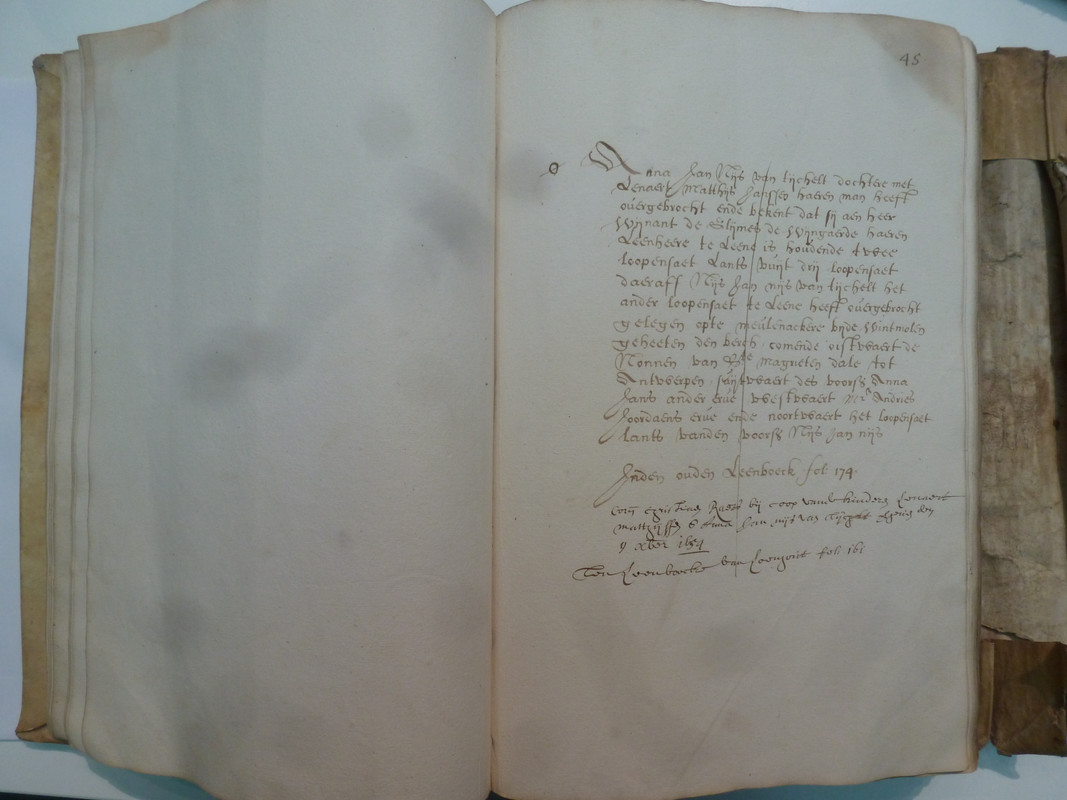 45
Anna Jan Nijs van tijchelt dochtere met
Lenaert Matthijs Janssen haeren man heeft
overgebrocht ende bekent dat sij aen heer
Wijnant de Glijmes de Wijngaerde haeren
Leenheere te Leene is houdende twee
loopensaet Lants vuijt drij loopensaet
daeraff Nijs Jan nijs van tijchelt het
ander loopensaet te Leene heeft overgebrocht
gelegen opte meulenackere bijde wintmolen
geheeten den berch comende oistwaert de
Nonnen van Ste magrieten dale tot
Antwerpen suijtwaert des voorss Anna
Jans ander erve westwaert Mr Andries
Joordaens erve ende noortwaert het loopensaet
lants vanden voorss Nijs Jan nijs
Inden ouden Leenboeck fol 174
bij coop vande kinderen Lenaert
Anna Jan nijs van den
9 xber 1654
Ten Leenboecke van fol 161